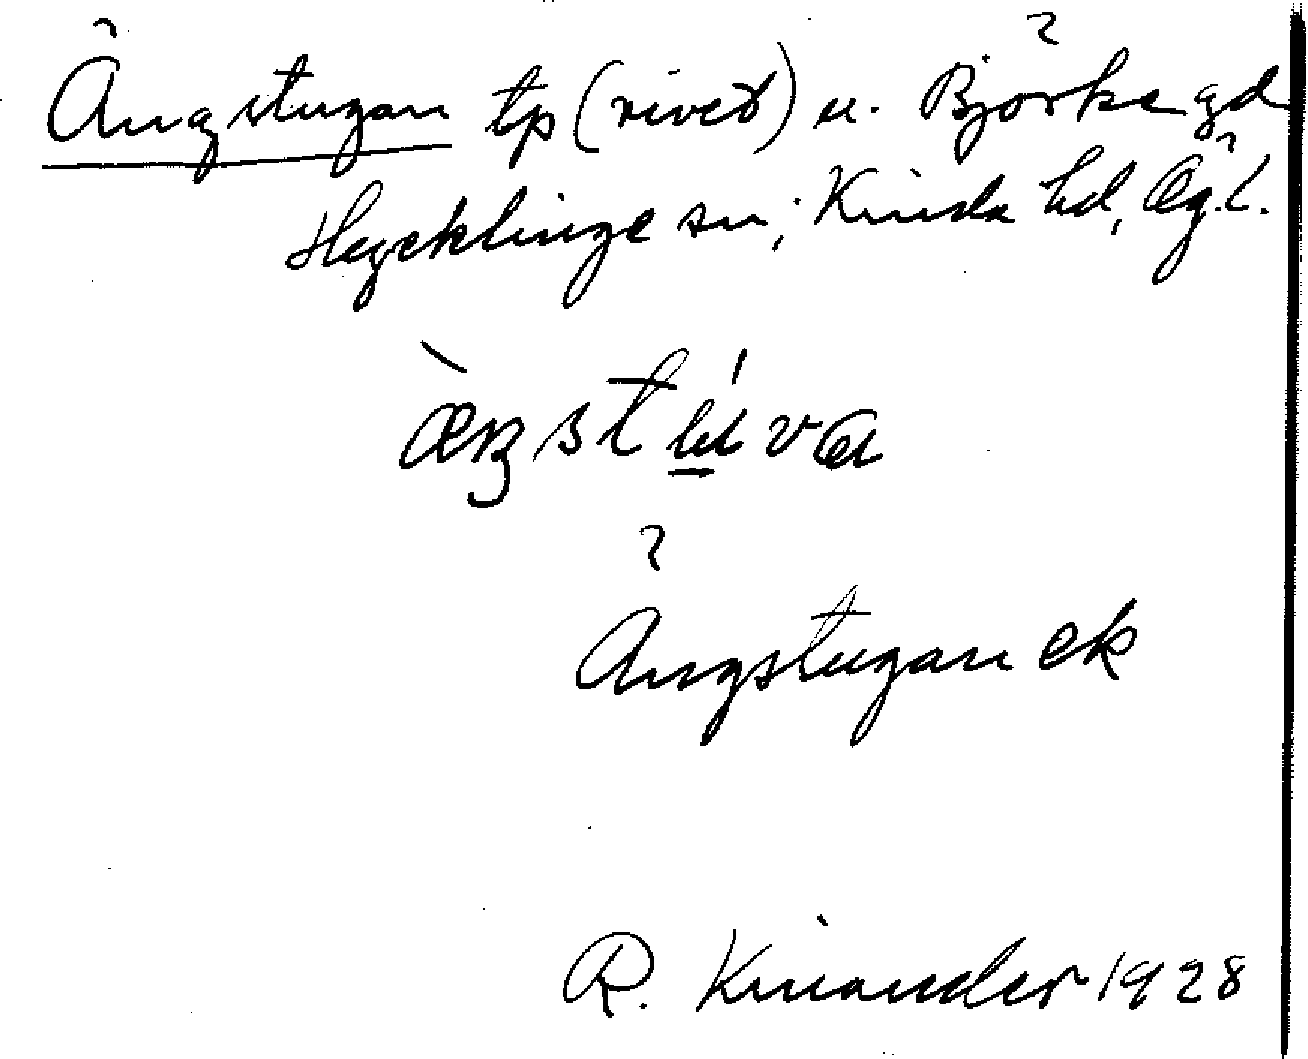 Ängstugan tp (rivet) u. Björke gd
Hycklinge sn, Kinda hd, Ög.l.
Ängstugan ek
R. Kinander 1928